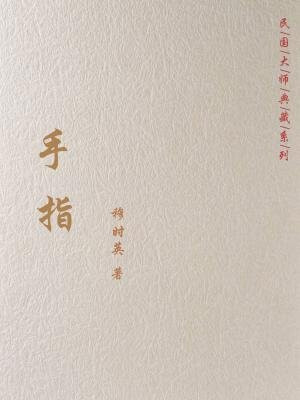 民|国|大|师|典|藏|系|列
手指
穆时英 著